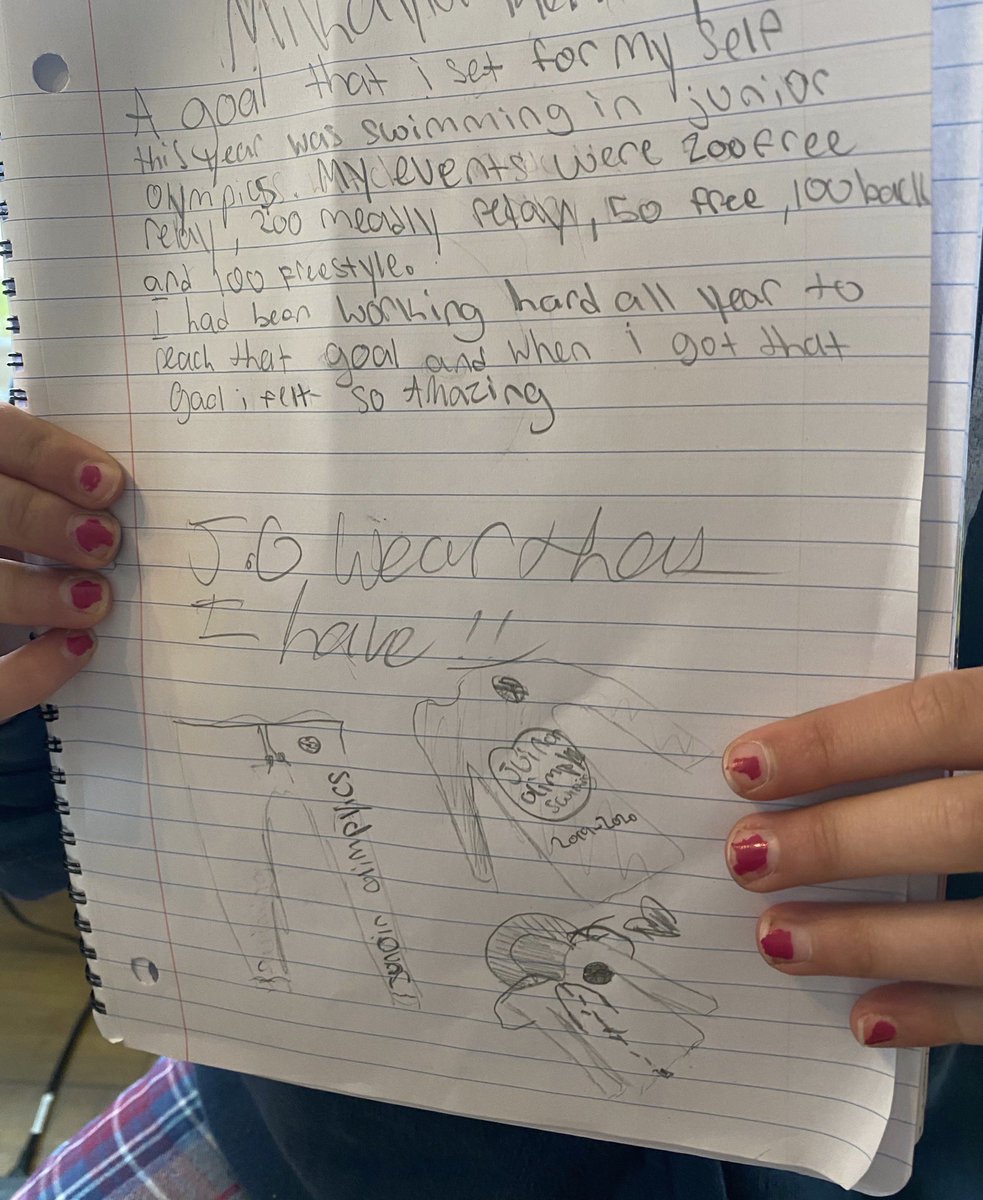 A goal that i set for my self
this year was swimming in junior
olympics. My events were 200 free
relay, 200 meadly relay, 50 free, 100 back
and 100 freestyle.
I had been working hard all year to
reach that goal and when i got that
goal i felt so Amazing
J.O wear thas
I have !!
olimplics
2019-2020